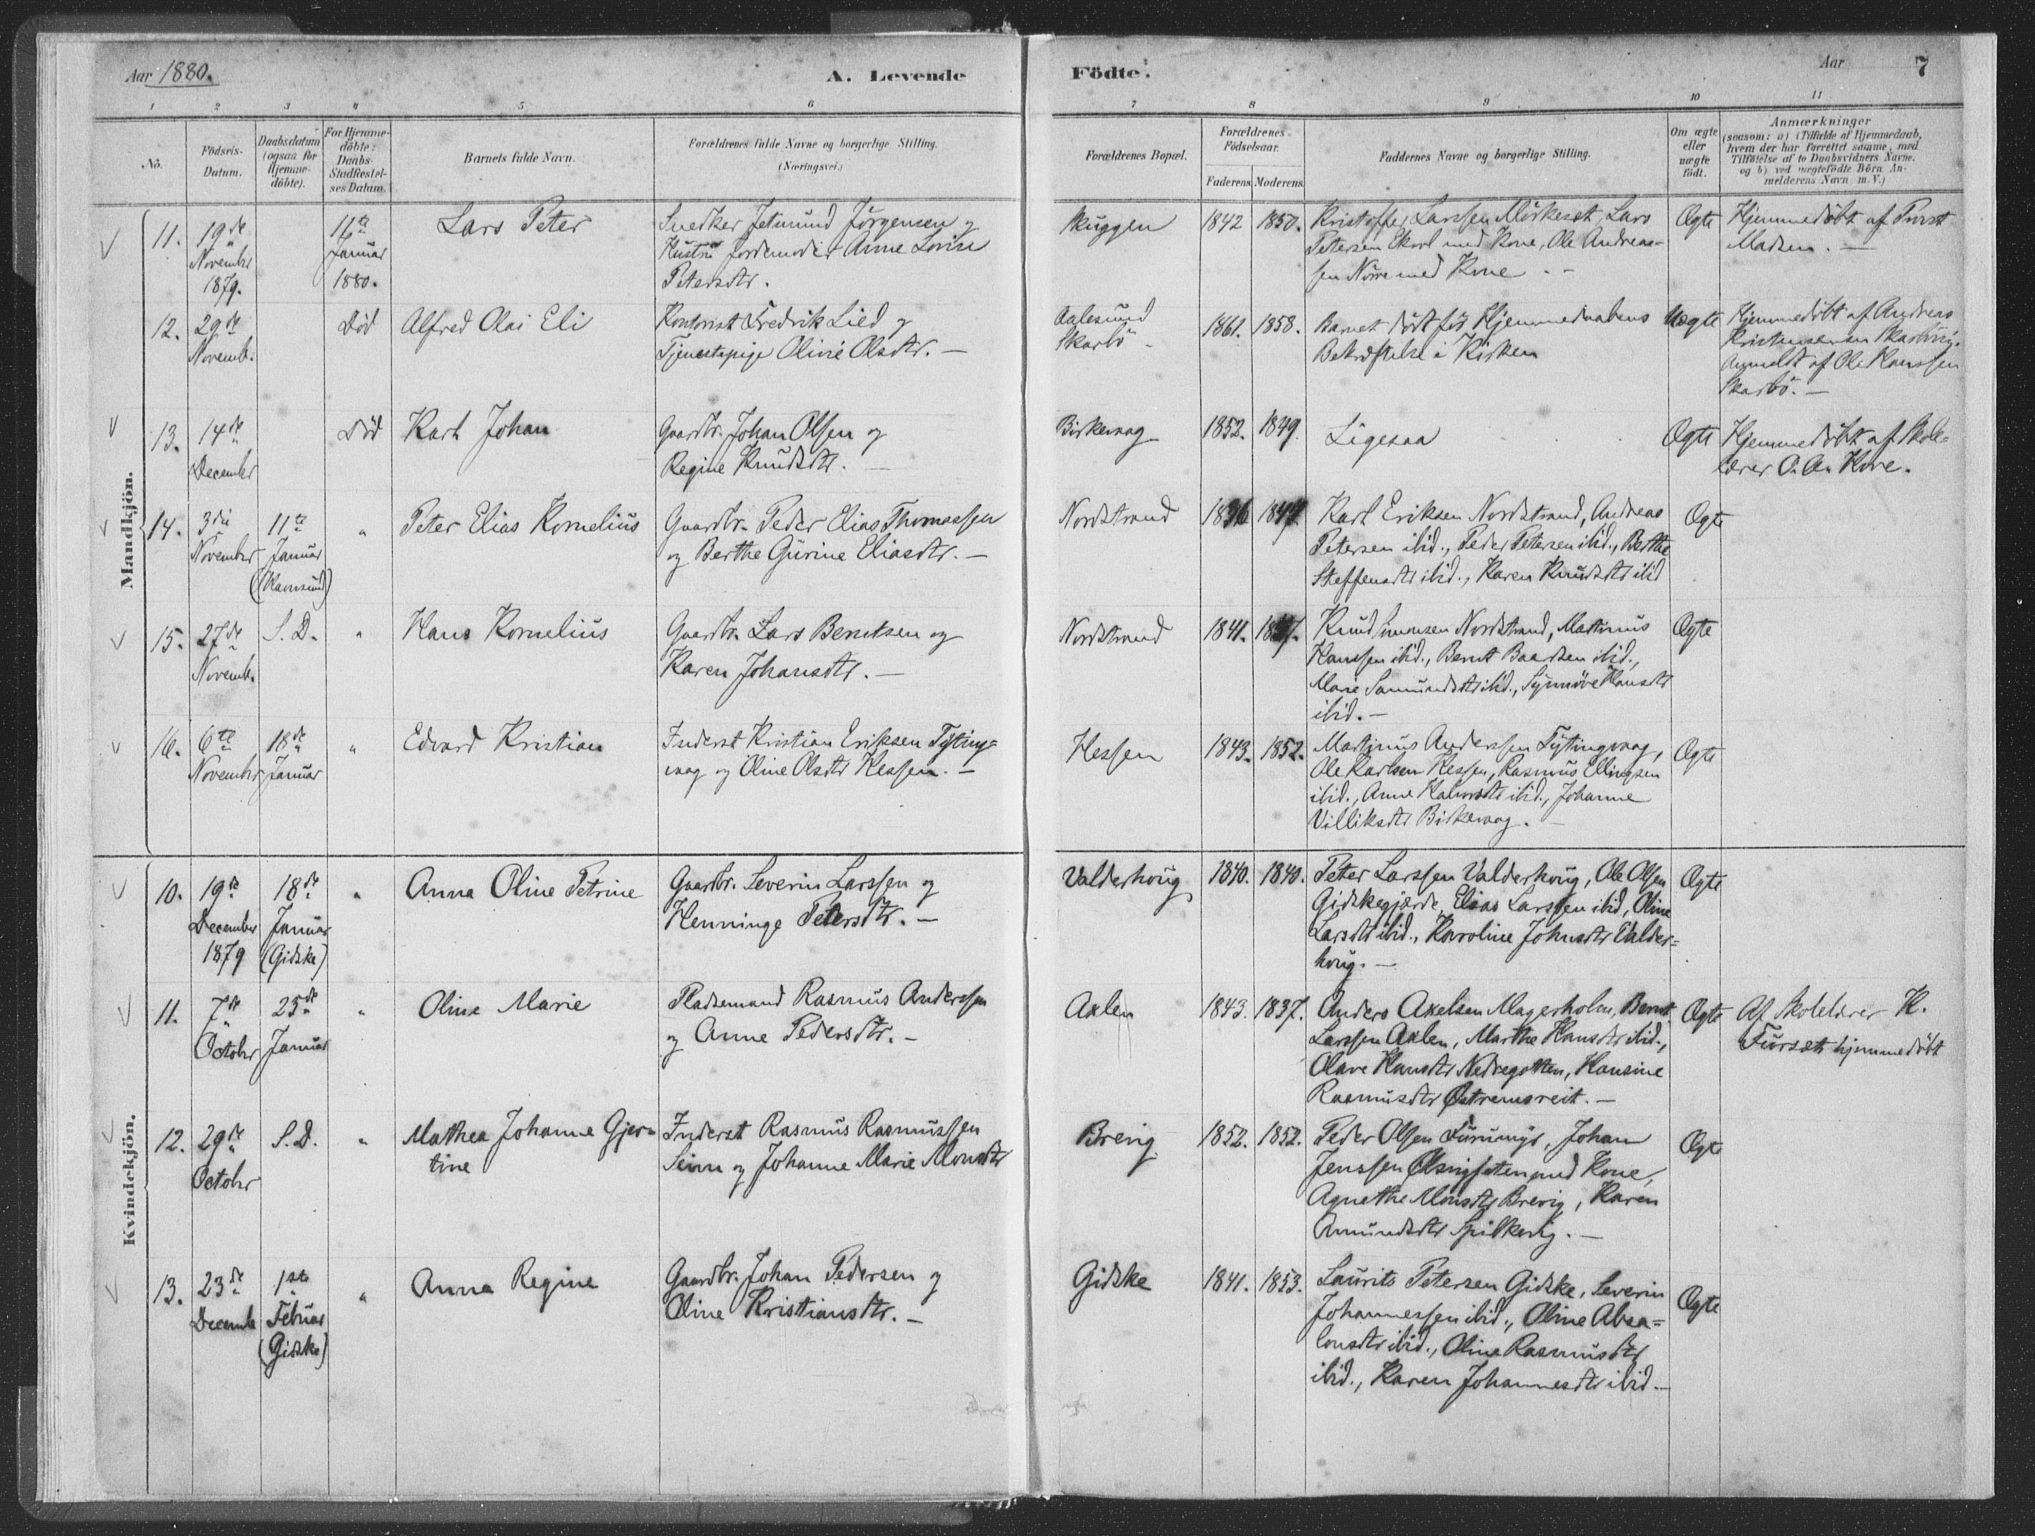 Aar 1880.
A. Levende
Födte.
Aar
7
1 2 3 4 5 6 7 8 9 10 11
No.
Födsels-
Datum.
Daabsdatum
(ogsaa for
Hjemme-
döbte).
For Hjemme-
döbte:
Daabs-
Stadfæstel-
ses Datum.
Barnets fulde Navn.
Forældrenes fulde Navne og borgerlige Stilling.
(Næringsvei.)
Forældrenes Bopæl.
Forældrenes
Födselsaar.
Faderens Moderens
Faddernes Navne og borgerlige Stilling.
Om ægte
eller
uægte
födt.
Anmærkninger
(saasom: a) (Tilfælde af Hjemmedaab,
hvem der har forrettet samme, med
Tilföielse af to Daabsvidners Navne.
og b) ved uægtefödte Börn An-
melderens Navn m. V.)
Mandkjön.
11.
19de
Novembr
1879.
11te
Januar
1880.
Lars Peter
Snedker Jetmund Jörgensen og
Hustru Jordemoder Anne Lovise
Petersdtr.
Skuggen
1842 1850.
Kristoffer Larssen Mörkeset, Lars
Petersen Skorl med Kone, Ole Andreas-
sen Nörve med Kone
Ægte
Hjemmedöbt af Provst
Madsen.
12.
29de
Novemb.
Död
Alfred Olai Eli
Kontorist Fredrik Lied og
Tjenestepige Olivie Olsdtr.
Aalesund
Skarbö
1861. 1858.
Barnet dödt för Hjemmedaabens
Bekræftelse i Kirken
Uægte
Hjemmedöbt af Andreas
Kristensen
Anmeldt af Ole Hanssen
Skarbö.
13.
14de
December
Död
Karl Johan
Gaardbr. Johan Olsen og
Regine Knudsdtr.
Birkevaag
1852. 1849.
Ligesaa
Ægte
Hjemmedöbt af Skole-
lærer O. A.
14.
3die
November
11te
Januar
(Hamsund)
"
Peter Elias Kornelius
Gaardbr. Peder Elias Thomassen
og Berthe Gurine Eliasdtr.
Nordstrand
1836 1847
Karl Eriksen Nordstrand, Andreas
Petersen ibid., Peder Petersen ibid., Berthe
Steffensdtr ibid., Karen Knudsdtr ibid
Ægte
15.
27de
Novemb.
S. D.
"
Hans Kornelius
Gaardbr. Lars Berntsen og
Karen Johansdtr.
Nordstrand
1841.
Knud Simonsen Nordstrand, Martinus
Hanssen ibid., Bernt Baardsen ibid.,
Marie Samundsdtr ibid., Synnöve Hansdtr
ibid.
Ægte
16.
6te
November
18de
Januar
"
Edvard Kristian
Inderst Kristian Eriksen Tyting-
vaag og Oline Olsdtr Hessen.
Hessen
1843. 1852.
Martinus Anderssen Tytingvaag,
Ole Karlsen Hessen, Rasmus Ellingsen
ibid., Anne Halvorsdtr ibid., Johanne
Villiksdtr Birkevaag.
Ægte
Kvindekjön.
10.
19de
December
1879
18de
Januar
(Gidske)
"
Anna Oline Petrine
Gaardbr. Severin Larssen og
Henninge Petersdtr.
Valderhoug
1840. 1840.
Peter Larssen Valderhoug, Ole Olsen
Gidskegjærde, Elias Larssen ibid, Oline
Larsdtr ibid., Karoline Johnsdtr Valder-
houg.
Ægte
11.
7de
Octobr
25de
Januar
"
Oline Marie
Pladsemand Rasmus Anderssen
og Anne Pedersdtr.
Axlen
1843. 1837.
Anders Axelsen Magerholm, Bernt
Larssen Axlen, Marthe Hansdtr ibid.,
Olave Hansdtr Nedregotten, Hansine
Rasmusdtr Östremsreit.
Ægte
Af Skolelærer K.
Fursæth hjemmedöbt
12.
29de
Octobr
S. D.
"
Mathea Johanne Gjer-
tine
Inderst Rasmus Rasmussen
Seim og Johanne Marie Monsdtr
Brevig
1852. 1852.
Peder Olsen Furmyr, Johan
Jenssen med Kone,
Agnethe Monsdtr Brevig, Karen
Amundsdtr Spilkevig.
Ægte
13.
23de
Decembr
1ste
Februar
(Gidske)
"
Anna Regine
Gaardbr. Johan Pedersen og
Oline Kristiansdtr.
Gidske
1841. 1853.
Laurits Petersen Gidske, Severin
Johannessen ibid., Oline Absa-
lonsdtr ibid., Oline Rasmusdtr
ibid., Karen Johannesdtr ibid.
Ægte